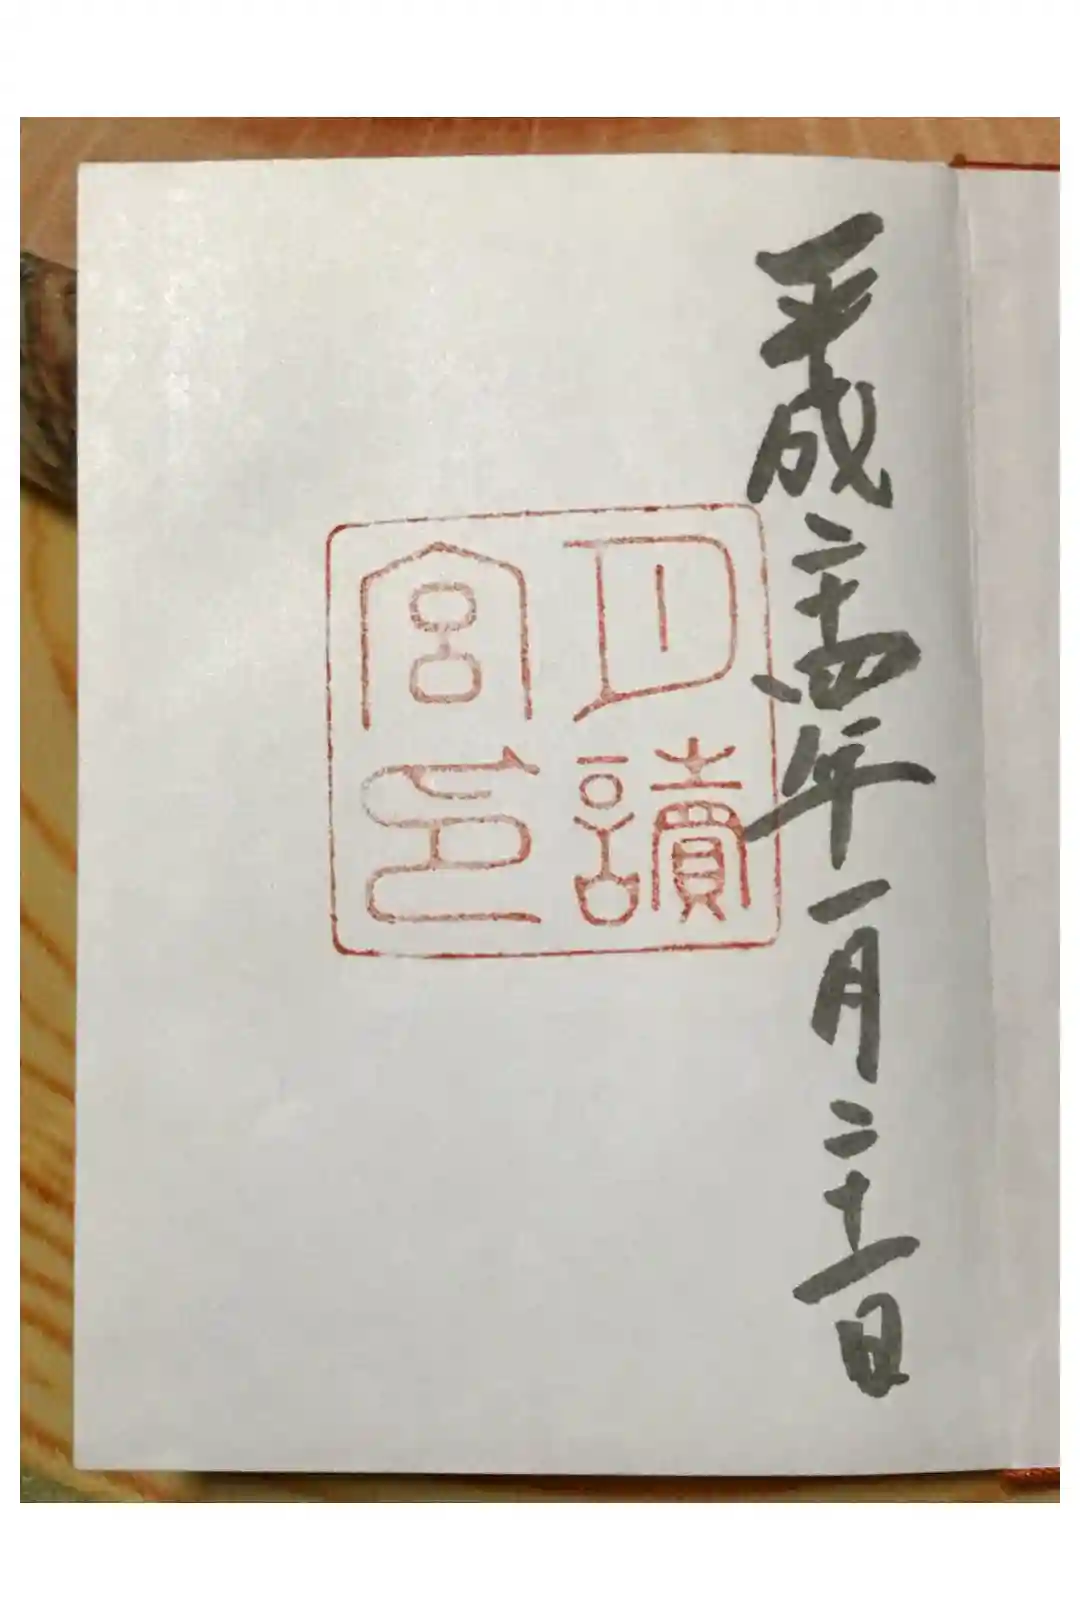 平成二十四年一月二十一日
月讀
宮印